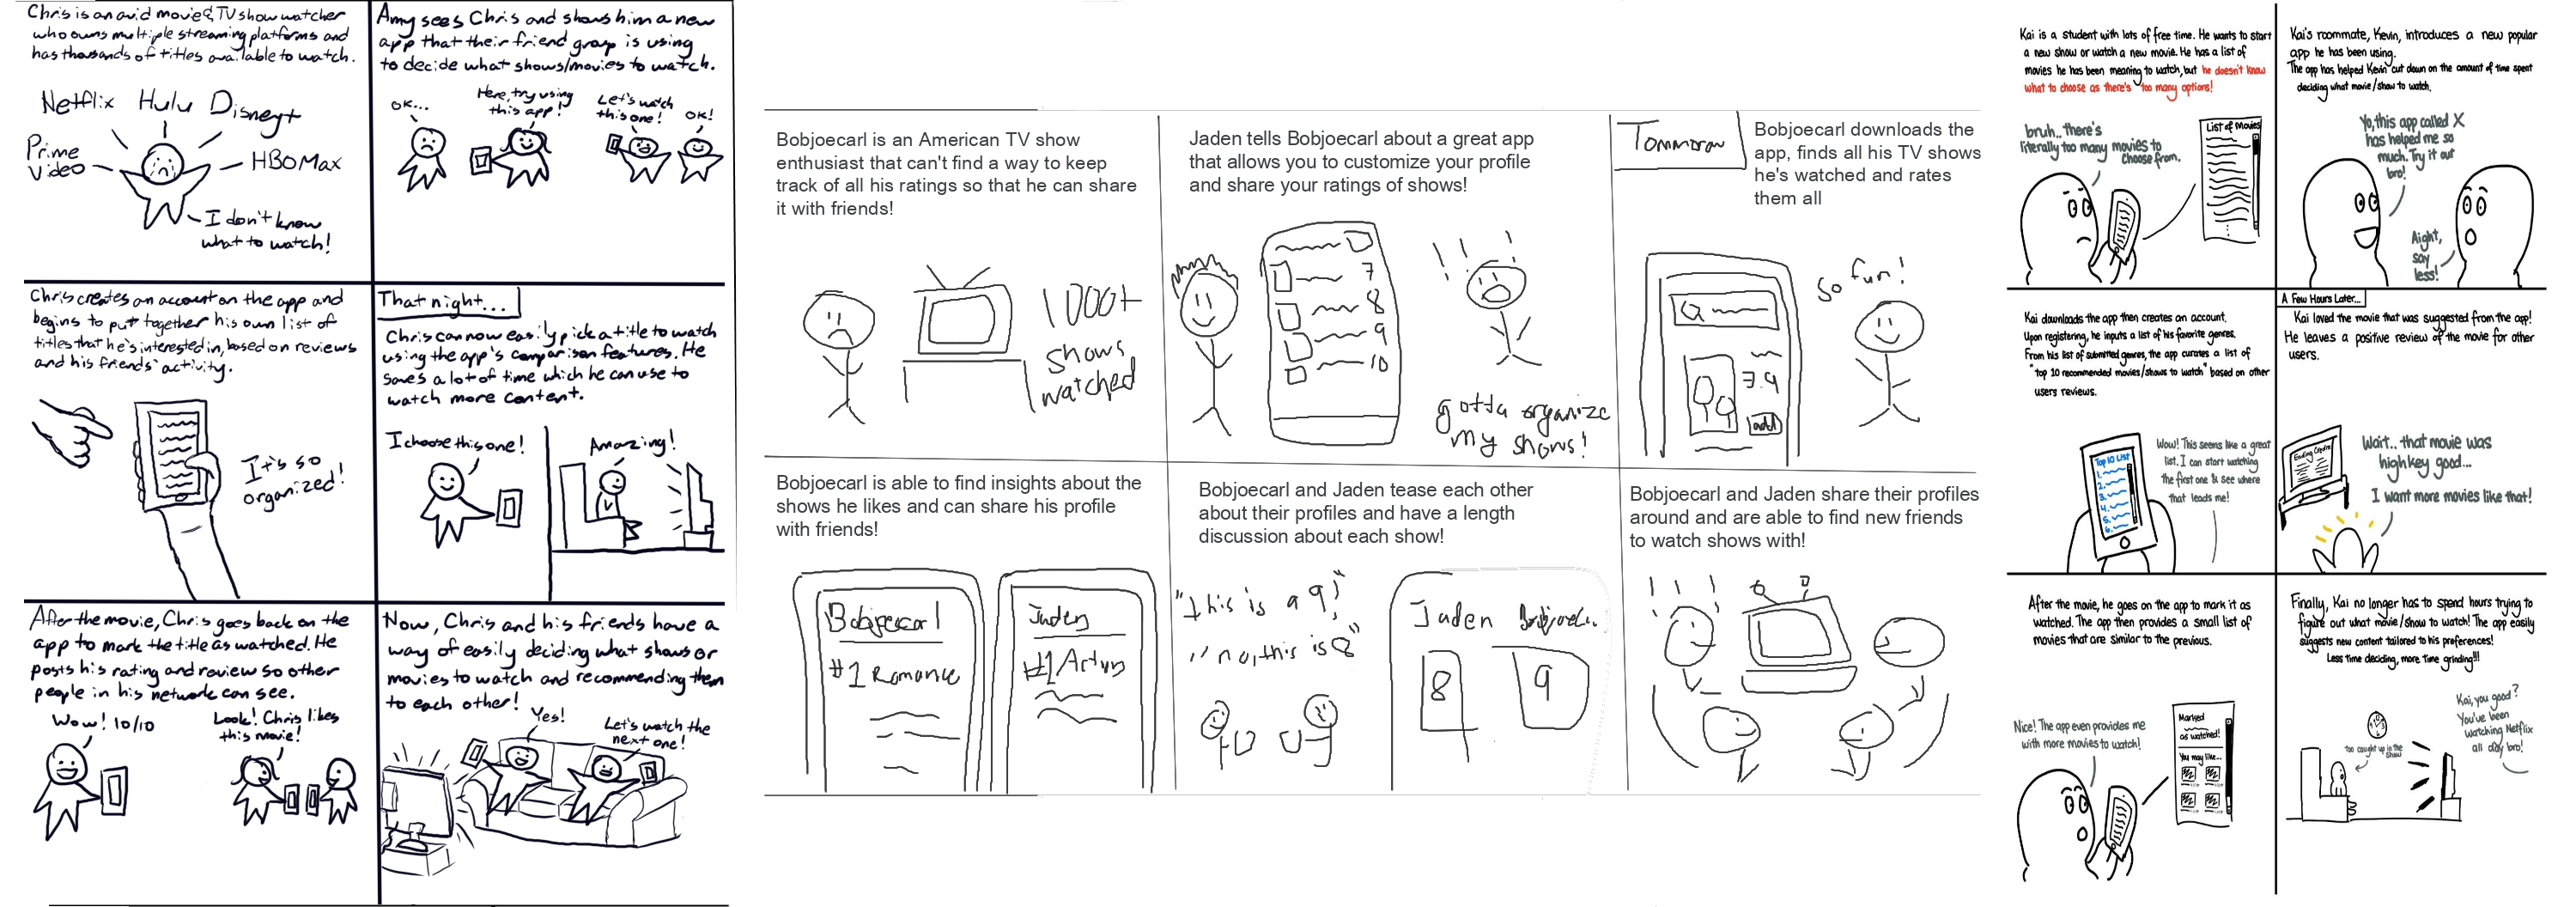 Chris is an avid movie & TV show watcher
who owns multiple streaming platforms and
has thousands of titles available to watch.
Netflix Hulu Disney+
Prime
Video
HBO Max
I don't know
what to watch!
Amy sees Chris and shows him a new
app that their friend group is using
to decide what shows/movies to watch.
OK...
Here, try using
this app!
Let's watch
this one!
OK!
Chris creates an account on the app and
begins to put together his own list of
titles that he's interested in, based on reviews
and his friends' activity.
It's so
organized!
That night...
Chris can now easily pick a title to watch
using the app's comparison features. He
saves a lot of time which he can use to
watch more content.
I choose this one!
Amazing!
After the movie, Chris goes back on the
app to mark the title as watched. He
posts his rating and review so other
people in his network can see.
Wow! 10/10
Look! Chris likes
this movie!
Now, Chris and his friends have a
way of easily deciding what shows or
movies to watch and recommending them
to each other!
Yes!
Let's watch the
next one!
Bobjoecarl is an American TV show
enthusiast that can't find a way to keep
track of all his ratings so that he can share
it with friends!
1000+
shows
watched
Jaden tells Bobjoecarl about a great app
that allows you to customize your profile
and share your ratings of shows!
7
8
9
10
! ! !
gotta organize
my shows!
Tommorow
Bobjoecarl downloads the
app, finds all his TV shows
he's watched and rates
them all
7.9
add
so fun!
Bobjoecarl is able to find insights about the
shows he likes and can share his profile
with friends!
Bobjoecarl
#1 Romance
Jaden
Bobjoecarl and Jaden tease each other
about their profiles and have a length
discussion about each show!
"this is a 9!"
"no, this is 8"
Jaden
8
9
Bobjoecarl and Jaden share their profiles
around and are able to find new friends
to watch shows with!
! ! !
Kai is a student with lots of free time. He wants to start
a new show or watch a new movie. He has a list of
movies he has been meaning to watch, but he doesn't know
what to choose as there's too many options!
bruh.. there's
literally too many movies to
choose from.
List of Movies
Kai's roommate, Kevin, introduces a new popular
app he has been using.
The app has helped Kevin cut down on the amount of time spent
deciding what movie/show to watch.
Yo, this app called X
has helped me so
much. Try it out
bro!
Aight,
say
less!
Kai downloads the app then creates an account.
Upon registering, he inputs a list of his favorite genres.
From his list of submitted genres, the app curates a list of
"top 10 recommended movies/shows to watch" based on other
users reviews.
Top 10 List
1.
2.
3.
4.
5.
6.
Wow! This seems like a great
list. I can start watching
the first one & see where
that leads me!
A Few Hours Later...
Kai loved the movie that was suggested from the app!
He leaves a positive review of the movie for other
users.
Ending Credits
Wait.. that movie was
highkey good...
I want more movies like that!
After the movie, he goes on the app to mark it as
watched. The app then provides a small list of
movies that are similar to the previous.
Nice! The app even provides me
with more movies to watch!
Marked
as watched!
You may like...
Finally, Kai no longer has to spend hours trying to
figure out what movie/show to watch! The app easily
suggests new content tailored to his preferences!
Less time deciding, more time grinding!!!
too caught up in the
show
Kai, you good?
You've been
watching Netflix
all day bro!